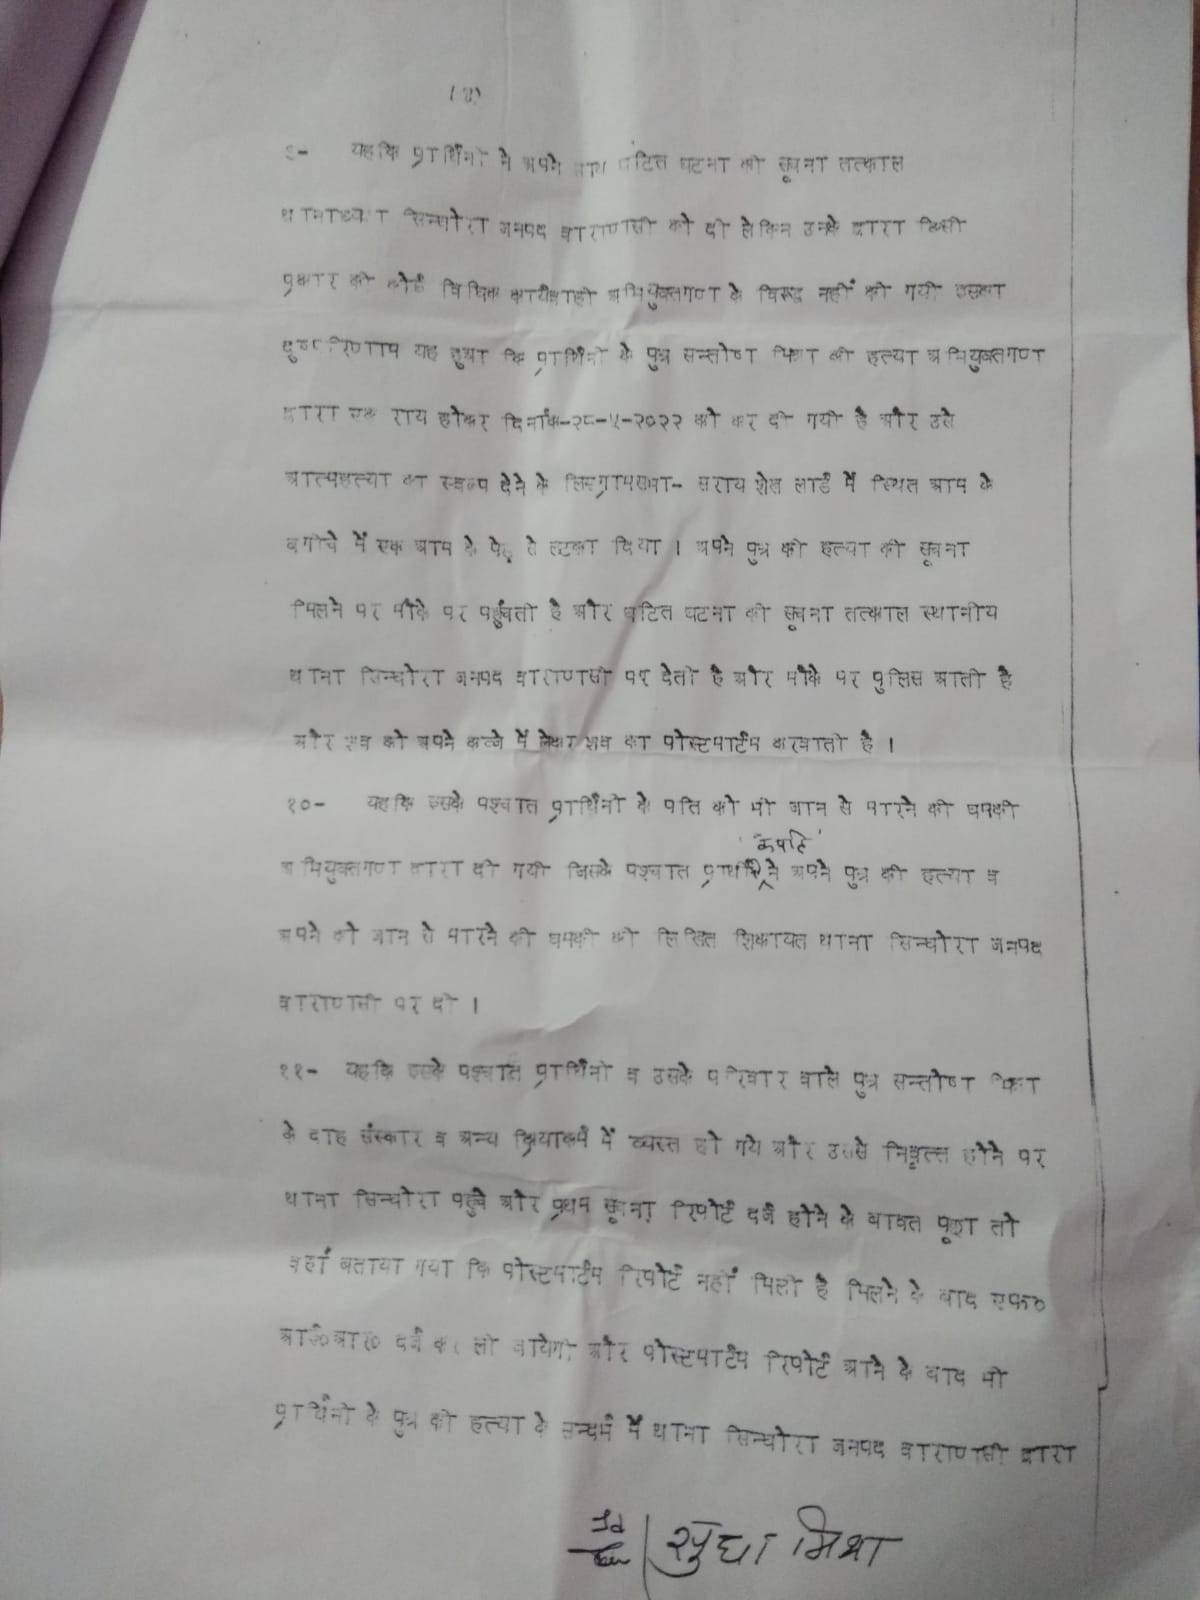 ९- यहकि प्रार्थिनी ने अपने साथ घटित घटना की सूचना तत्काल
थानाध्यक्ष सिन्धोरा जनपद वाराणसी को दी लेकिन उनके द्वारा किसी
प्रकार की कोई विधिक कार्यवाही अभियुक्तगण के विरुद्ध नहीं की गयी इसका
दुष्परिणाम यह हुआ कि प्रार्थिनी के पुत्र सन्तोष मिश्रा की हत्या अभियुक्तगण
द्वारा एक राय होकर दिनांक-२८-५-२०२२ को कर दी गयी है और उसे
आत्महत्या का स्वरूप देने के लिए ग्रामसभा- सराय शेख लार्ड में स्थित आम के
बगीचे में एक आम के पेड़ से लटका दिया । अपने पुत्र की हत्या की सूचना
मिलने पर मौके पर पहुंचती है और घटित घटना की सूचना तत्काल स्थानीय
थाना सिन्धोरा जनपद वाराणसी पर देती है और मौके पर पुलिस आती है
और शव को अपने कब्जे में लेकर शव का पोस्टमार्टम करवाती है ।
१०- यहकि इसके पश्चात प्रार्थिनी के पति को भी जान से मारने की धमकी
के पति
अभियुक्तगण द्वारा दी गयी जिसके पश्चात प्रार्थिनी ने अपने पुत्र की हत्या व
अपने को जान से मारने की धमकी की लिखित शिकायत थाना सिन्धोरा जनपद
वाराणसी पर दी ।
११- यहकि इसके पश्चात प्रार्थिनी व उसके परिवार वाले पुत्र सन्तोष मिश्रा
के दाह संस्कार व अन्य क्रियाकर्म में व्यस्त हो गये और उससे निवृत्त होने पर
थाना सिन्धोरा पहुंचे और प्रथम सूचना रिपोर्ट दर्ज होने के बावत पूछा तो
वहां बताया गया कि पोस्टमार्टम रिपोर्ट नहीं मिली है मिलने के बाद एफ०
आई०आर० दर्ज कर ली जायेगी और पोस्टमार्टम रिपोर्ट आने के बाद भी
प्रार्थिनी के पुत्र की हत्या के सन्दर्भ में थाना सिन्धोरा जनपद वाराणसी द्वारा
सुधा मिश्रा